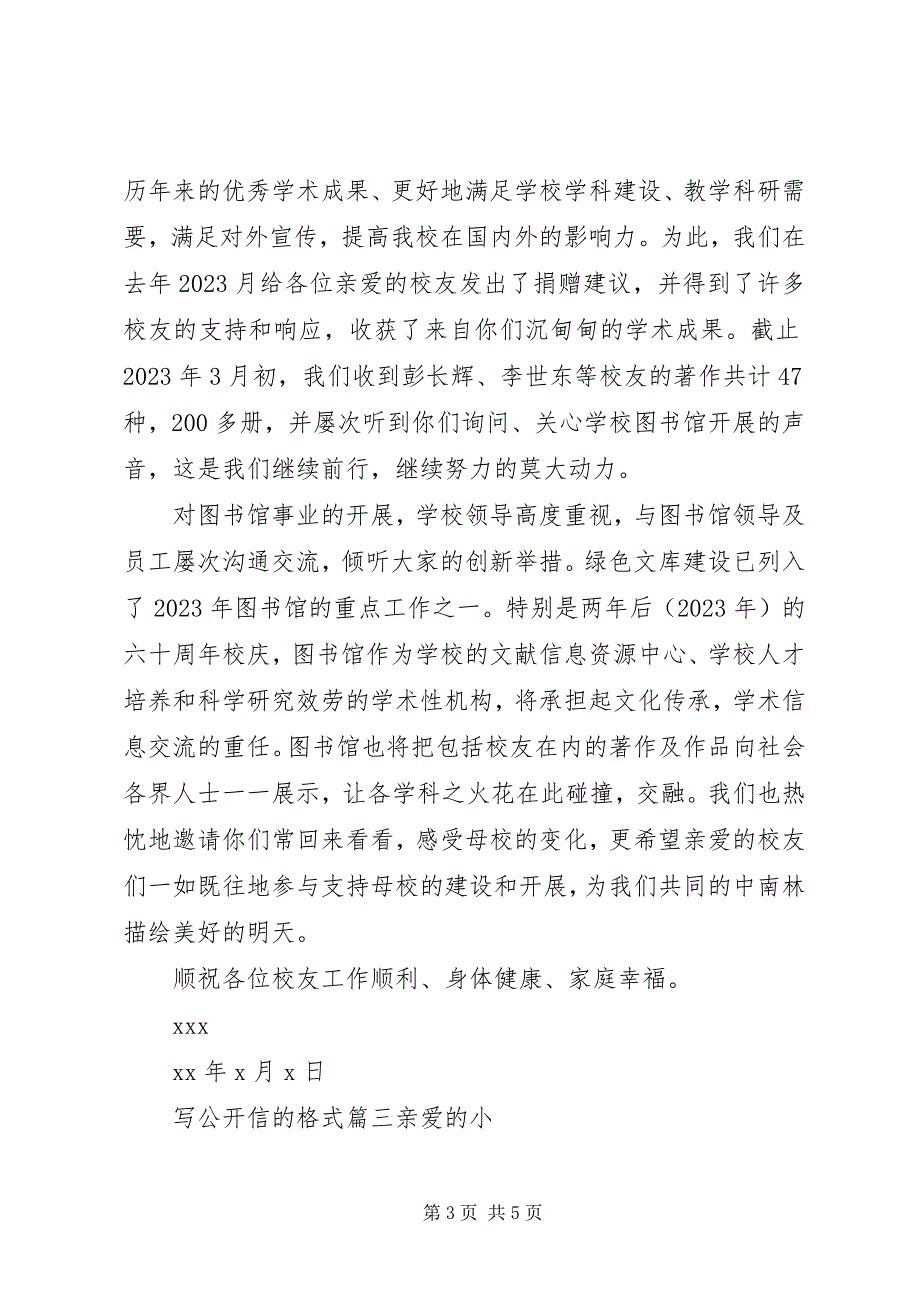 历年来的优秀学术成果、更好地满足学校学科建设、教学科研需
要，满足对外宣传，提高我校在国内外的影响力。为此，我们在
去年 2023 月给各位亲爱的校友发出了捐赠建议，并得到了许多
校友的支持和响应，收获了来自你们沉甸甸的学术成果。截止
2023 年 3 月初，我们收到彭长辉、李世东等校友的著作共计 47
种，200 多册，并屡次听到你们询问、关心学校图书馆开展的声
音，这是我们继续前行，继续努力的莫大动力。
对图书馆事业的开展，学校领导高度重视，与图书馆领导及
员工屡次沟通交流，倾听大家的创新举措。绿色文库建设已列入
了 2023 年图书馆的重点工作之一。特别是两年后（2023 年）的
六十周年校庆，图书馆作为学校的文献信息资源中心、学校人才
培养和科学研究效劳的学术性机构，将承担起文化传承，学术信
息交流的重任。图书馆也将把包括校友在内的著作及作品向社会
各界人士一一展示，让各学科之火花在此碰撞，交融。我们也热
忱地邀请你们常回来看看，感受母校的变化，更希望亲爱的校友
们一如既往地参与支持母校的建设和开展，为我们共同的中南林
描绘美好的明天。
顺祝各位校友工作顺利、身体健康、家庭幸福。
xxx
xx 年 x 月 x 日
写公开信的格式篇三亲爱的小
第 3 页 共 5 页